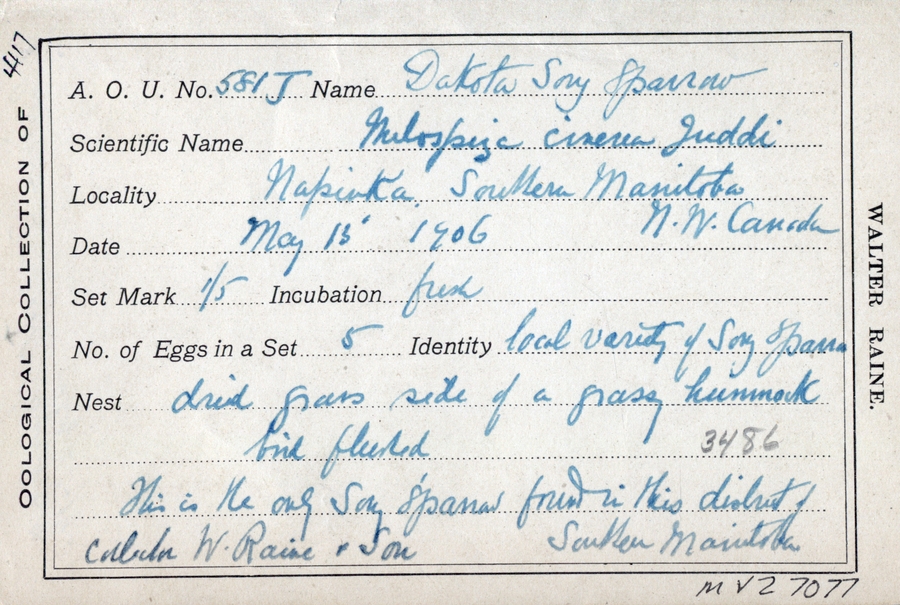 417
OOLOGICAL COLLECTION OF
A. O. U. No. 581 J Name Dakota Song Sparrow
Scientific Name Melospiza cinerea Juddi
Locality Napinka, Southern Manitoba
N.W. Canada
Date May 15 1906
Set Mark 1/5 Incubation fresh
No. of Eggs in a Set 5 Identity local variety of Song Sparrow
Nest dried grass side of a grassy hummock
bird flushed 3486
This is the only Song Sparrow found in this district of
Collector W. Raine & Son Southern Manitoba
WALTER RAINE.
MVZ 7077